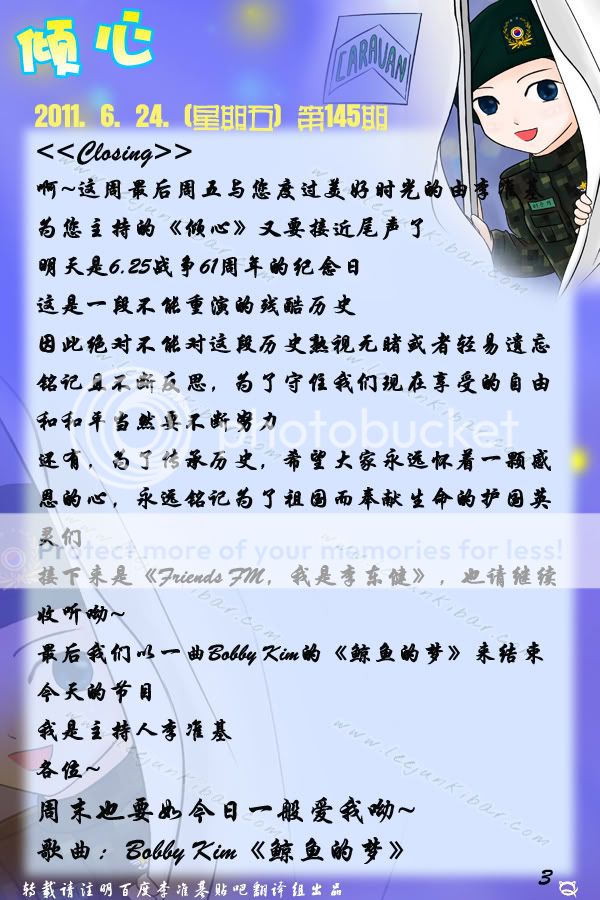 倾心
CARAVAN
2011. 6. 24. (星期五) 第145期
<<Closing>>
啊~这周最后周五与您度过美好时光的由李准基
为您主持的《倾心》又要接近尾声了
明天是6.25战争61周年的纪念日
这是一段不能重演的残酷历史
因此绝对不能对这段历史熟视无睹或者轻易遗忘
铭记且不断反思，为了守住我们现在享受的自由
和和平当然要不断努力
还有，为了传承历史，希望大家永远怀着一颗感
恩的心，永远铭记为了祖国而奉献生命的护国英
灵们
photobucket
Protect more of your memories for less!
接下来是《Friends FM，我是李东健》，也请继续
收听呦~
最后我们以一曲Bobby Kim的《鲸鱼的梦》来结束
今天的节目
我是主持人李准基
各位~
周末也要如今日一般爱我呦~
歌曲：Bobby Kim《鲸鱼的梦》
www.leejunkibar.com
3
转载请注明百度李准基贴吧翻译组出品